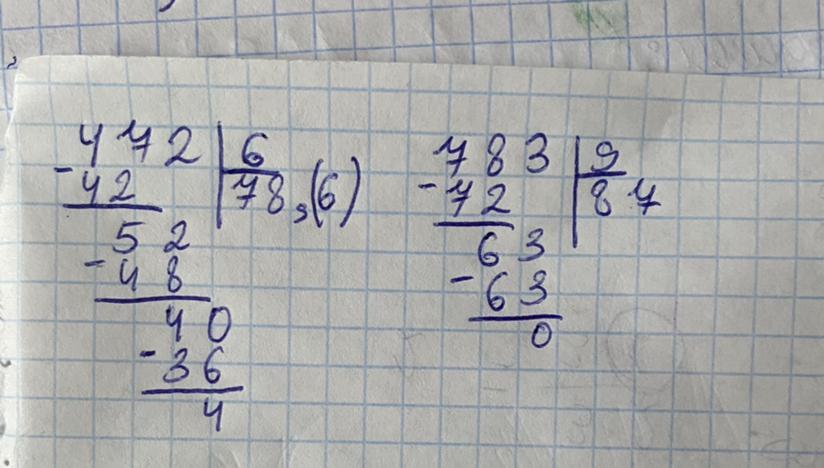 472 6
-42 78,(6)
52
-48
40
-36
4
783 9
-72 87
63
-63
0